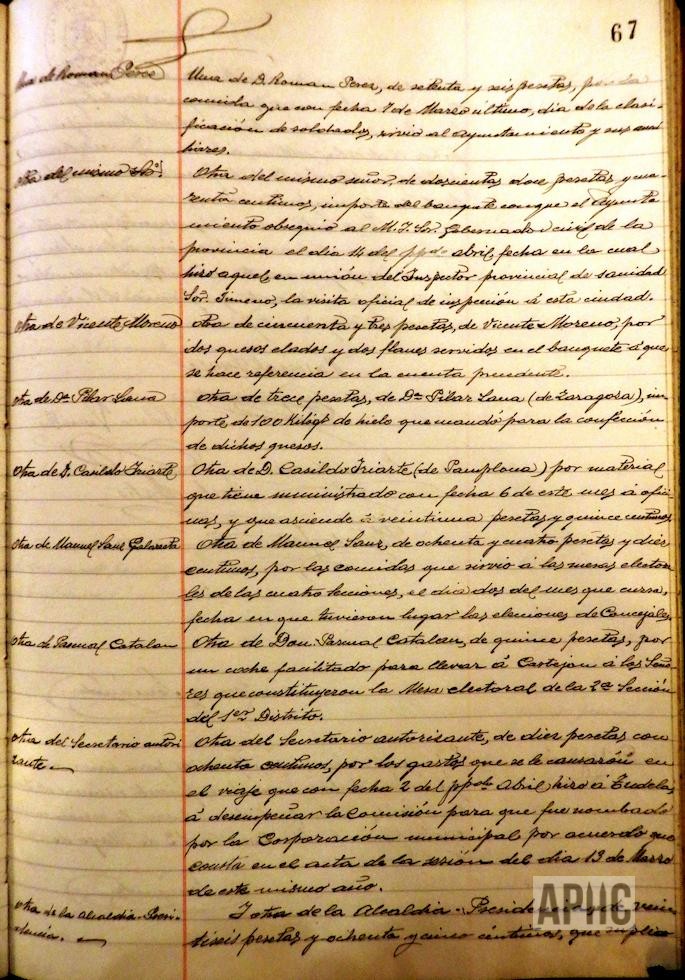 67
Una de Roman Perez
Una de D. Roman Perez, de setenta y seis pesetas, por la
comida que con fecha 7 de Marzo último, dia de la clasi-
ficación de soldados, sirvió al Ayuntamiento y sus auxi
liares.
Otra del mismo Sr.
Otra del mismo señor, de doscientas doce pesetas y cua-
renta centimos, importe del banquete con que el Ayunta
miento obsequió al M. I. Sor. Gobernador civil de la
provincia el dia 14 del ppdo abril, fecha en la cual
hizo aquel, en unión del Inspector provincial de sanidad
Sor. Jimeno, la visita oficial de inspección á esta ciudad.
Otra de Vicente Moreno
Otra de cincuenta y tres pesetas, de Vicente Moreno, por
dos quesos elados y dos flanes servidos en el banquete á que
se hace referencia en la cuenta precedente.
Otra de Dª Pilar Lana
Otra de trece pesetas, de Dª Pilar Lana (de Zaragosa), im
porte de 100 Kilógs de hielo que mandó para la confección
de dichos quesos.
Otra de D. Casildo Iriarte
Otra de D. Casildo Iriarte (de Pamplona) por material
que tiene suministrado con fecha 6 de este mes á ofici
nas, y que asciende á veintiuna pesetas y quince centimos
Otra de Manuel Sanz Galarreta
Otra de Manuel Sanz, de ochenta y cuatro pesetas y diez
centimos, por las comidas que sirvió á las mesas electora
les de las cuatro secciones, el dia dos del mes que cursa,
fecha en que tuvieron lugar las elecciones de Concejales.
Otra de Pascual Catalan
Otra de Don Pascual Catalan, de quince pesetas, por
un coche facilitado para llevar á Castejon á los Seño
res que constituyeron la Mesa electoral de la 2ª Sección
del 1er Distrito.
Otra del Secretario autori
zante.
Otra del Secretario autorizante, de diez pesetas con
ochenta centimos, por los gastos que se le causarón en
el viaje que con fecha 2 del ppdo Abril hizo á Tudela,
á desempeñar la comisión para que fue nombrado
por la Corporación municipal por acuerdo que
consta en el acta de la sesión del dia 13 de Marzo
de este mismo año.
Otra de la Alcaldia-Presi-
dencia.
Y otra de la Alcaldia-Presidencia, de vein
tiseis pesetas y ochenta y cinco céntimos, que suplió
APHC